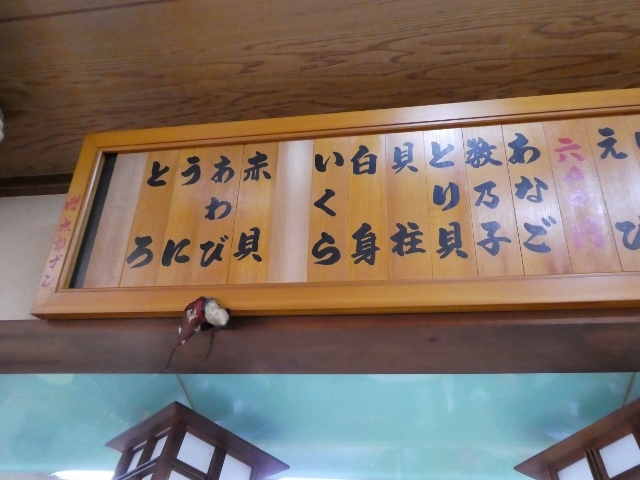 えび
あなご
数乃子
とり貝
貝柱
白身
いくら
赤貝
あわび
うに
とろ